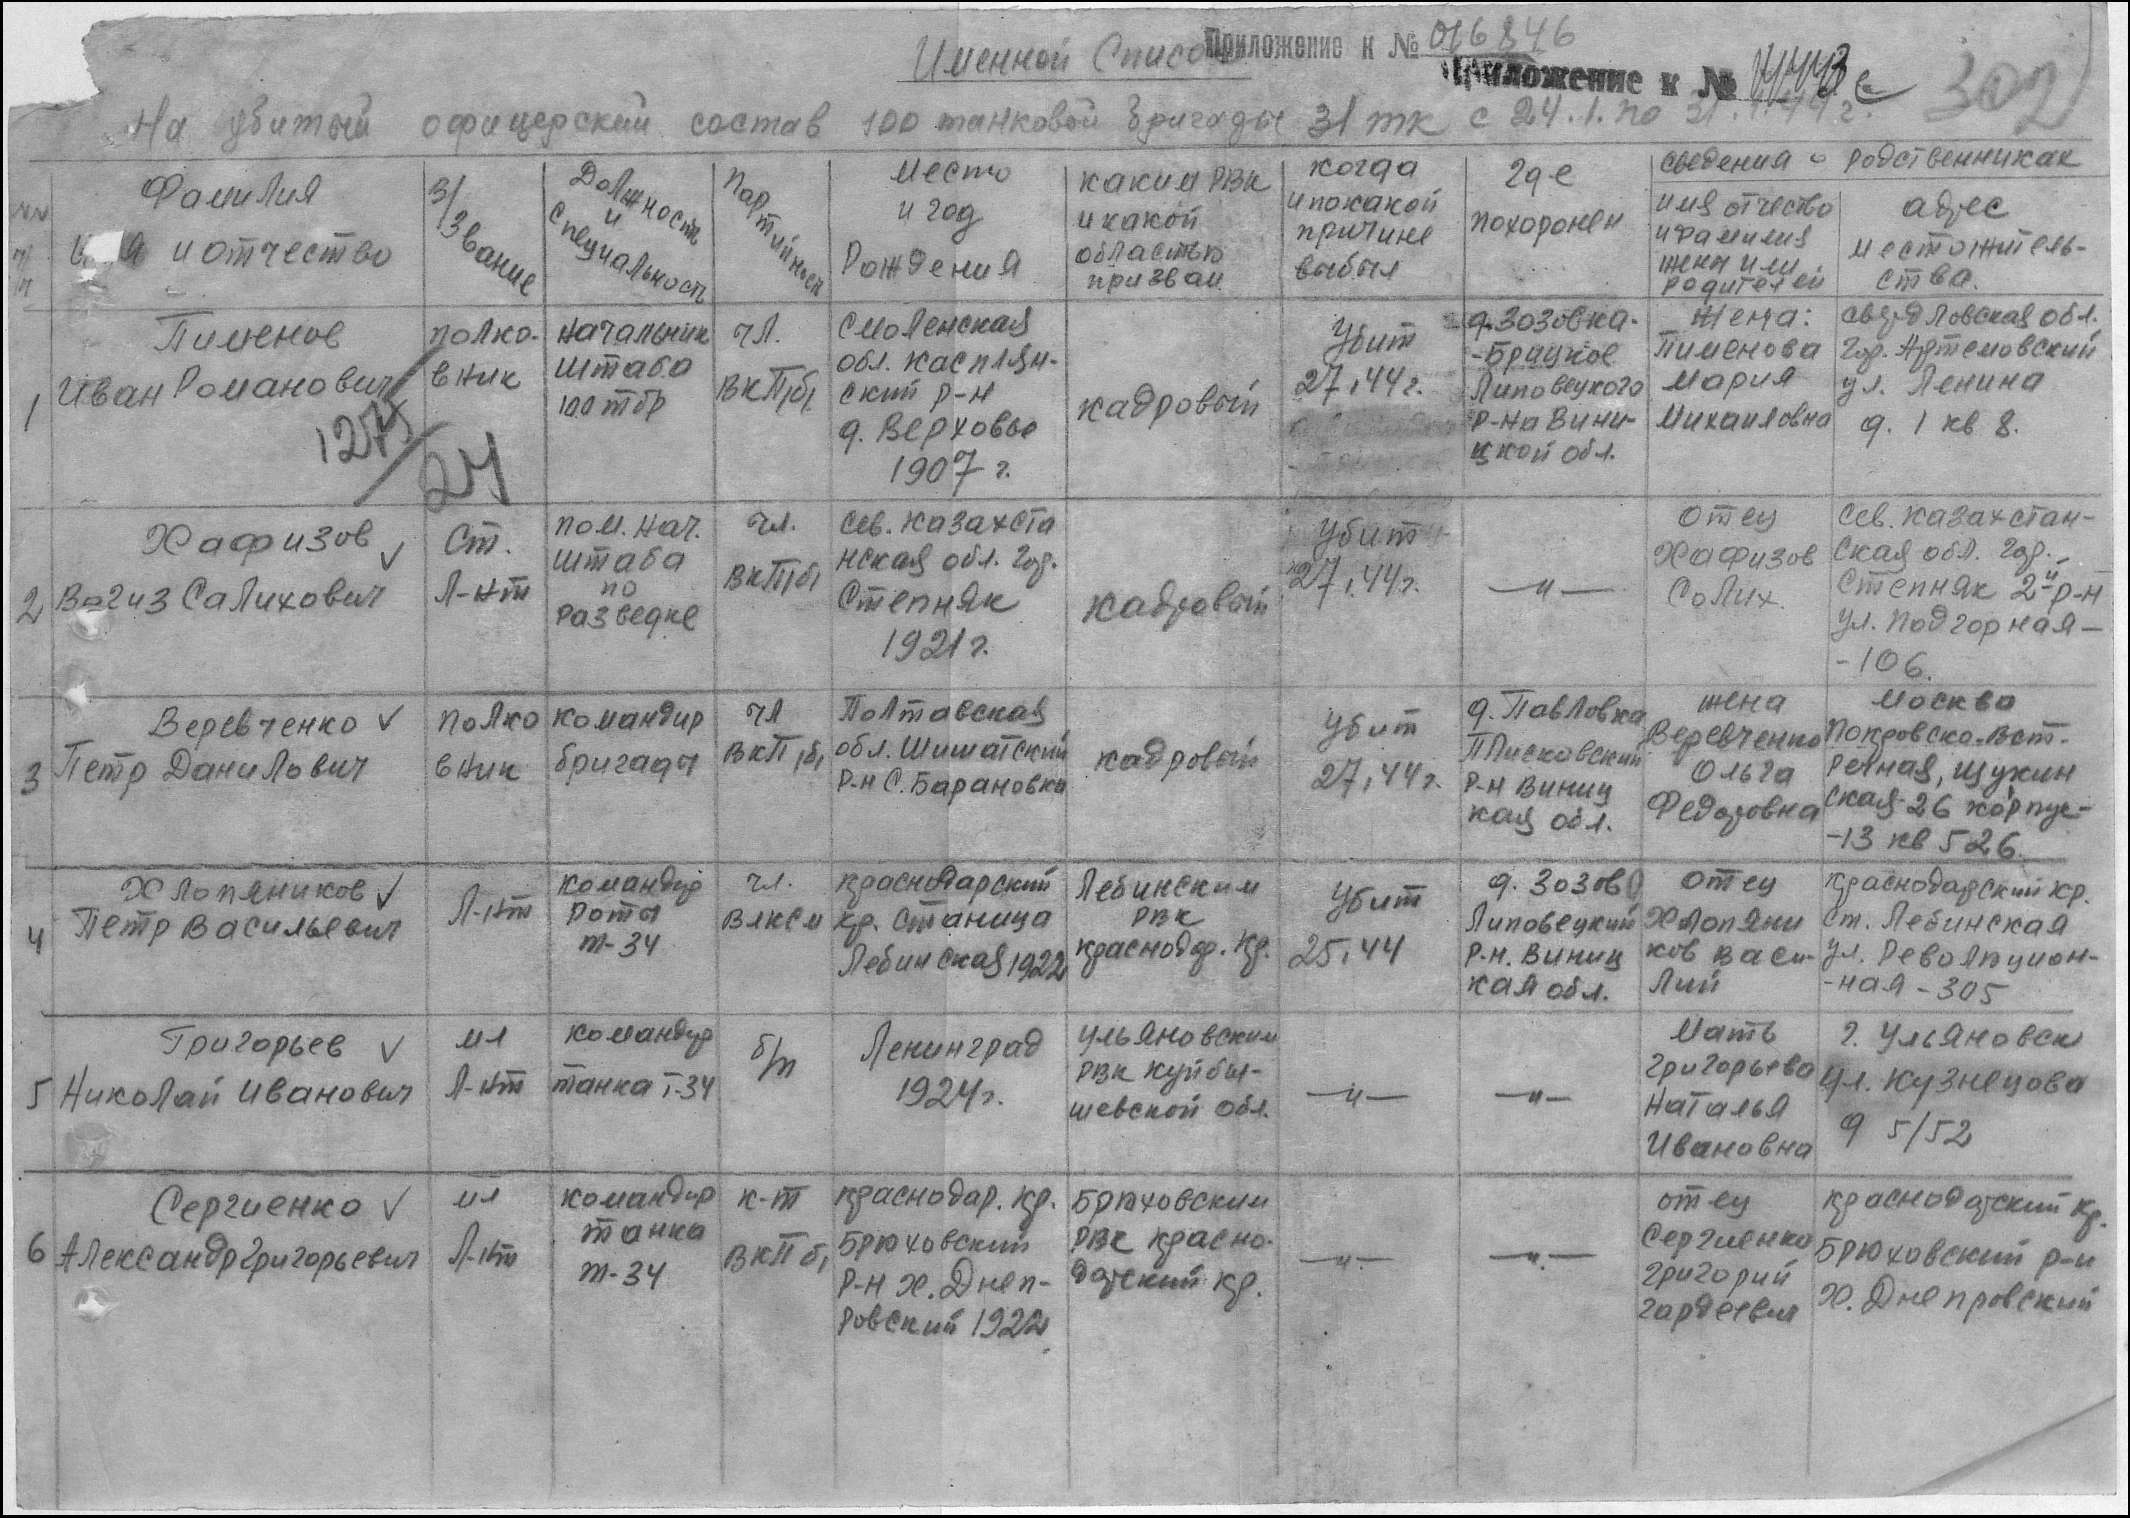 Именной Список
Приложение к № 016846
Приложение к №
302
На убитый офицерский состав 100 танковой бригады 31 тк с 24.1. по 31.1.44 г.
Фамилия
и отчество
В/Звание
Должность
и
специальность
Партийность
Место
и год
Рождения
каким РВК
и какой
областью
призван
когда
и по какой
причине
выбыл
где
похоронен
сведения о родственниках
имя отчество
и фамилия
жены или
родителей
адрес
местожитель-
ства.
1
Пименов
Иван Романович
1275/24
полко-
вник
начальник
штаба
100 тбр
чл.
ВКП/б/
Смоленская
обл. Касплян-
ский р-н
д. Верховье
1907 г.
кадровый
Убит
27.1.44 г.
д. Зозовка-
-Брацкое
Липовецкого
р-на Вини-
цкой обл.
Жена:
Пименова
Мария
Михайловна
Свердловская обл.
гор. Артемовский
ул. Ленина
д. 1 кв 8.
2
Хафизов
Вагиз Салихович
Ст.
Л-нт
пом. нач.
штаба
по
разведке
чл.
ВКП/б/
Сев. Казахста
нская обл. гор.
Степняк
1921 г.
кадровый
Убит
27.1.44 г.
—"—
Отец
Хафизов
Салих.
Сев. Казахстан-
ская обл. гор.
Степняк 2й р-н
ул. Подгорная—
-106.
3
Веревченко
Петр Данилович
полко
вник
командир
бригады
чл
ВКП/б/
Полтавская
обл. Шишатский
р-н С. Барановка
кадровый
Убит
27.1.44 г.
д. Павловка
Плисковский
р-н Виниц
кая обл.
жена
Веревченко
Ольга
Федоровна
Москва
Покровско-
, Щукин
ская 26 корпус-
-13 кв 526.
4
Хлопяников
Петр Васильевич
Л-нт
командир
роты
т-34
чл.
ВЛКСМ
Краснодарский
кр. станица
Лебинская 1922
Лебинским
РВК
Краснодар. кр.
Убит
25.1.44
д. Зозов
Липовецкий
р-н. Виниц
кая обл.
отец
Хлопяни
ков Васи-
лий
Краснодарский кр.
ст. Лебинская
ул. Революцион-
-ная - 305
5
Григорьев
Николай Иванович
мл
Л-нт
командир
танка Т-34
б/п
Ленинград
1924 г.
Ульяновским
РВК Куйбы-
шевской обл.
—"—
—"—
Мать
Григорьева
Наталья
Ивановна
г. Ульяновск
ул. Кузнецова
д 5/52
6
Сергиенко
Александр Григорьевич
мл
Л-нт
командир
танка
т-34
к-т
ВКП б/
Краснодар. кр.
Брюховский
р-н х. Днеп-
ровский 1922
Брюховским
РВК Красно-
дарский кр.
—"—
—"—
отец
Сергиенко
Григорий
Гордеевич
Краснодарский кр.
Брюховский р-н
х. Днепровский